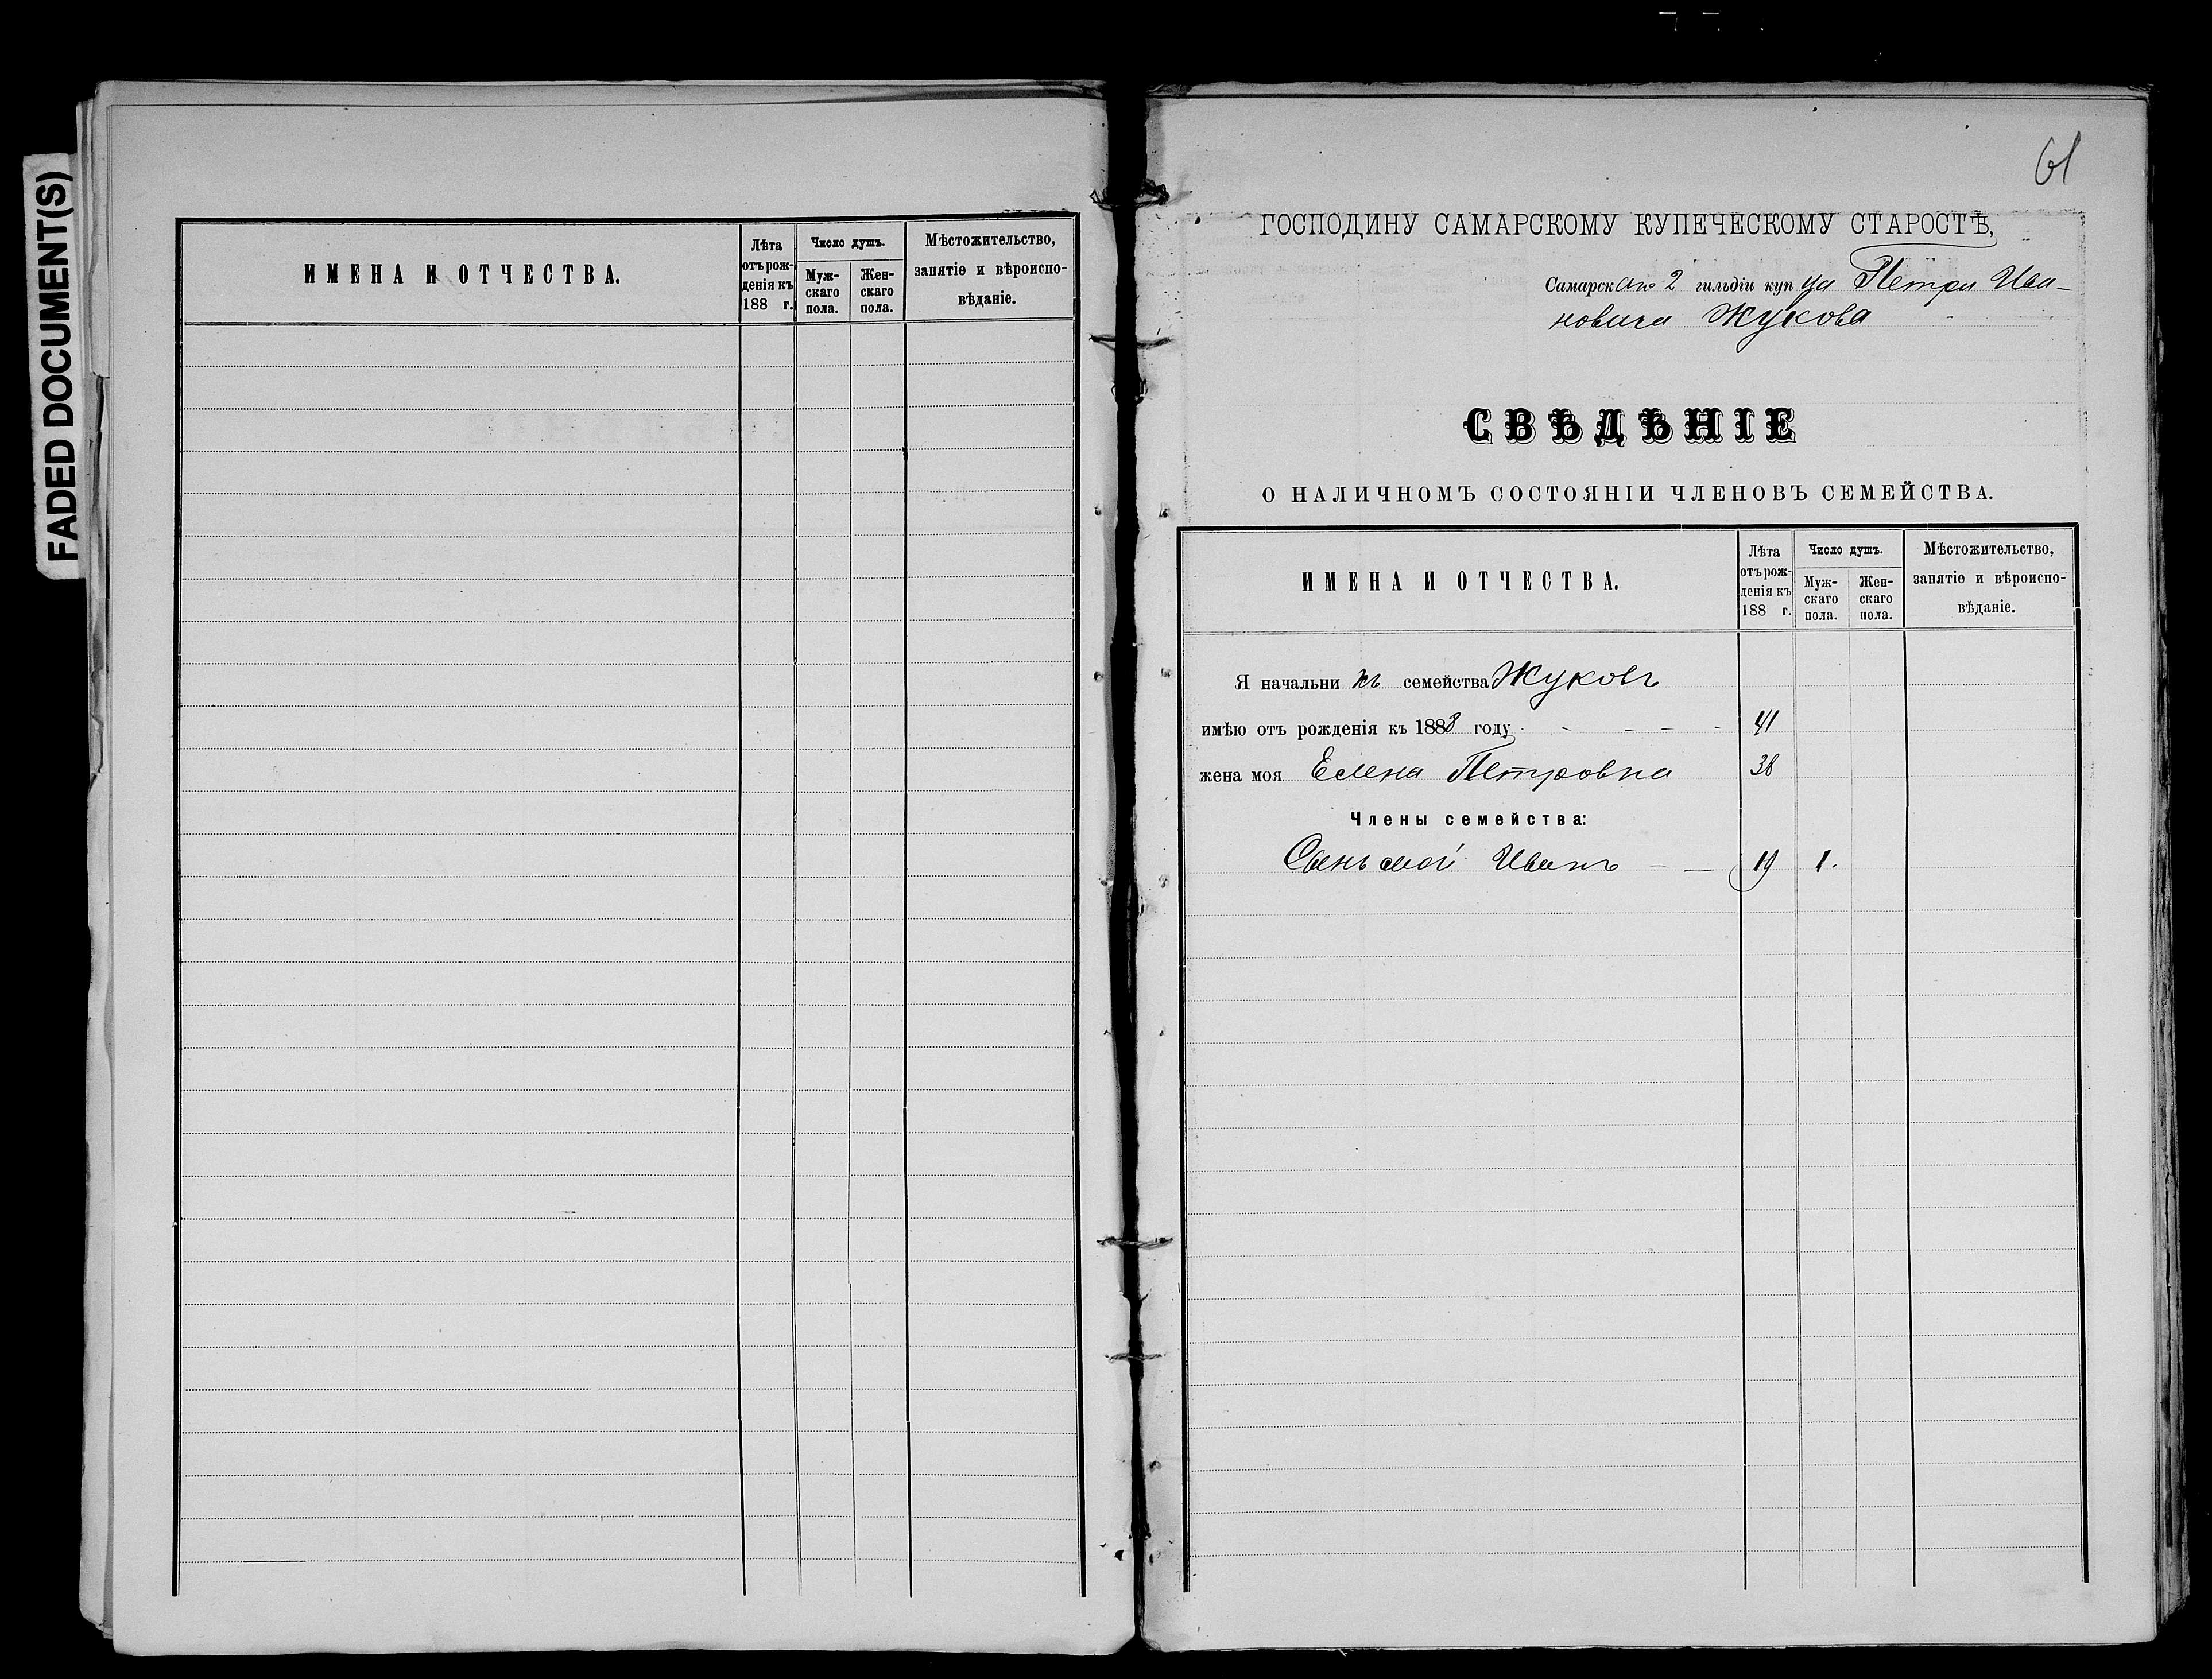 FADED DOCUMENT(S)
ИМЕНА И ОТЧЕСТВА.
Лѣта
отъ рож-
денія къ
188 г.
Число душъ.
Муж-
скаго
пола.
Жен-
скаго
пола.
Мѣстожительство,
занятіе и вѣроиспо-
вѣданіе.
61
ГОСПОДИНУ САМАРСКОМУ КУПЕЧЕСКОМУ СТАРОСТѢ,
Самарскаго 2 гильдіи купца Петра Ива-
новича Жукова
СВѢДѢНІЕ
О НАЛИЧНОМЪ СОСТОЯНІИ ЧЛЕНОВЪ СЕМЕЙСТВА.
ИМЕНА И ОТЧЕСТВА.
Лѣта
отъ рож-
денія къ
188 г.
Число душъ.
Муж-
скаго
пола.
Жен-
скаго
пола.
Мѣстожительство,
занятіе и вѣроиспо-
вѣданіе.
Я начальникъ семейства Жуковъ
имѣю отъ рожденія къ 1888 году - - - - 41
жена моя Елена Петровна 38
Члены семейства:
Сынъ мой Иванъ - - 19 1.